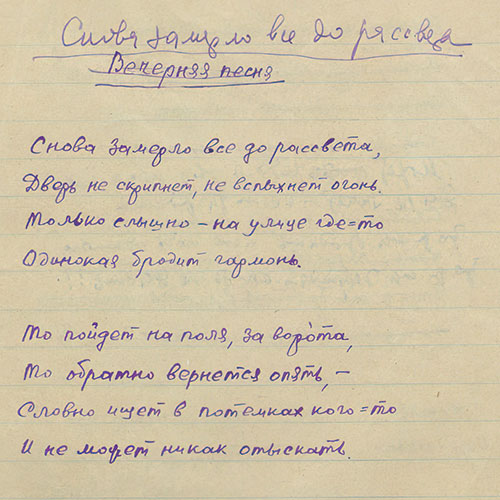 Снова замерло все до рассвета
Вечерняя песня
Снова замерло все до рассвета,
Дверь не скрипнет, не вспыхнет огонь.
Только слышно – на улице где=то
Одинокая бродит гармонь.
То пойдет на поля, за ворота,
То обратно вернется опять, –
Словно ищет в потемках кого=то
И не может никак отыскать.